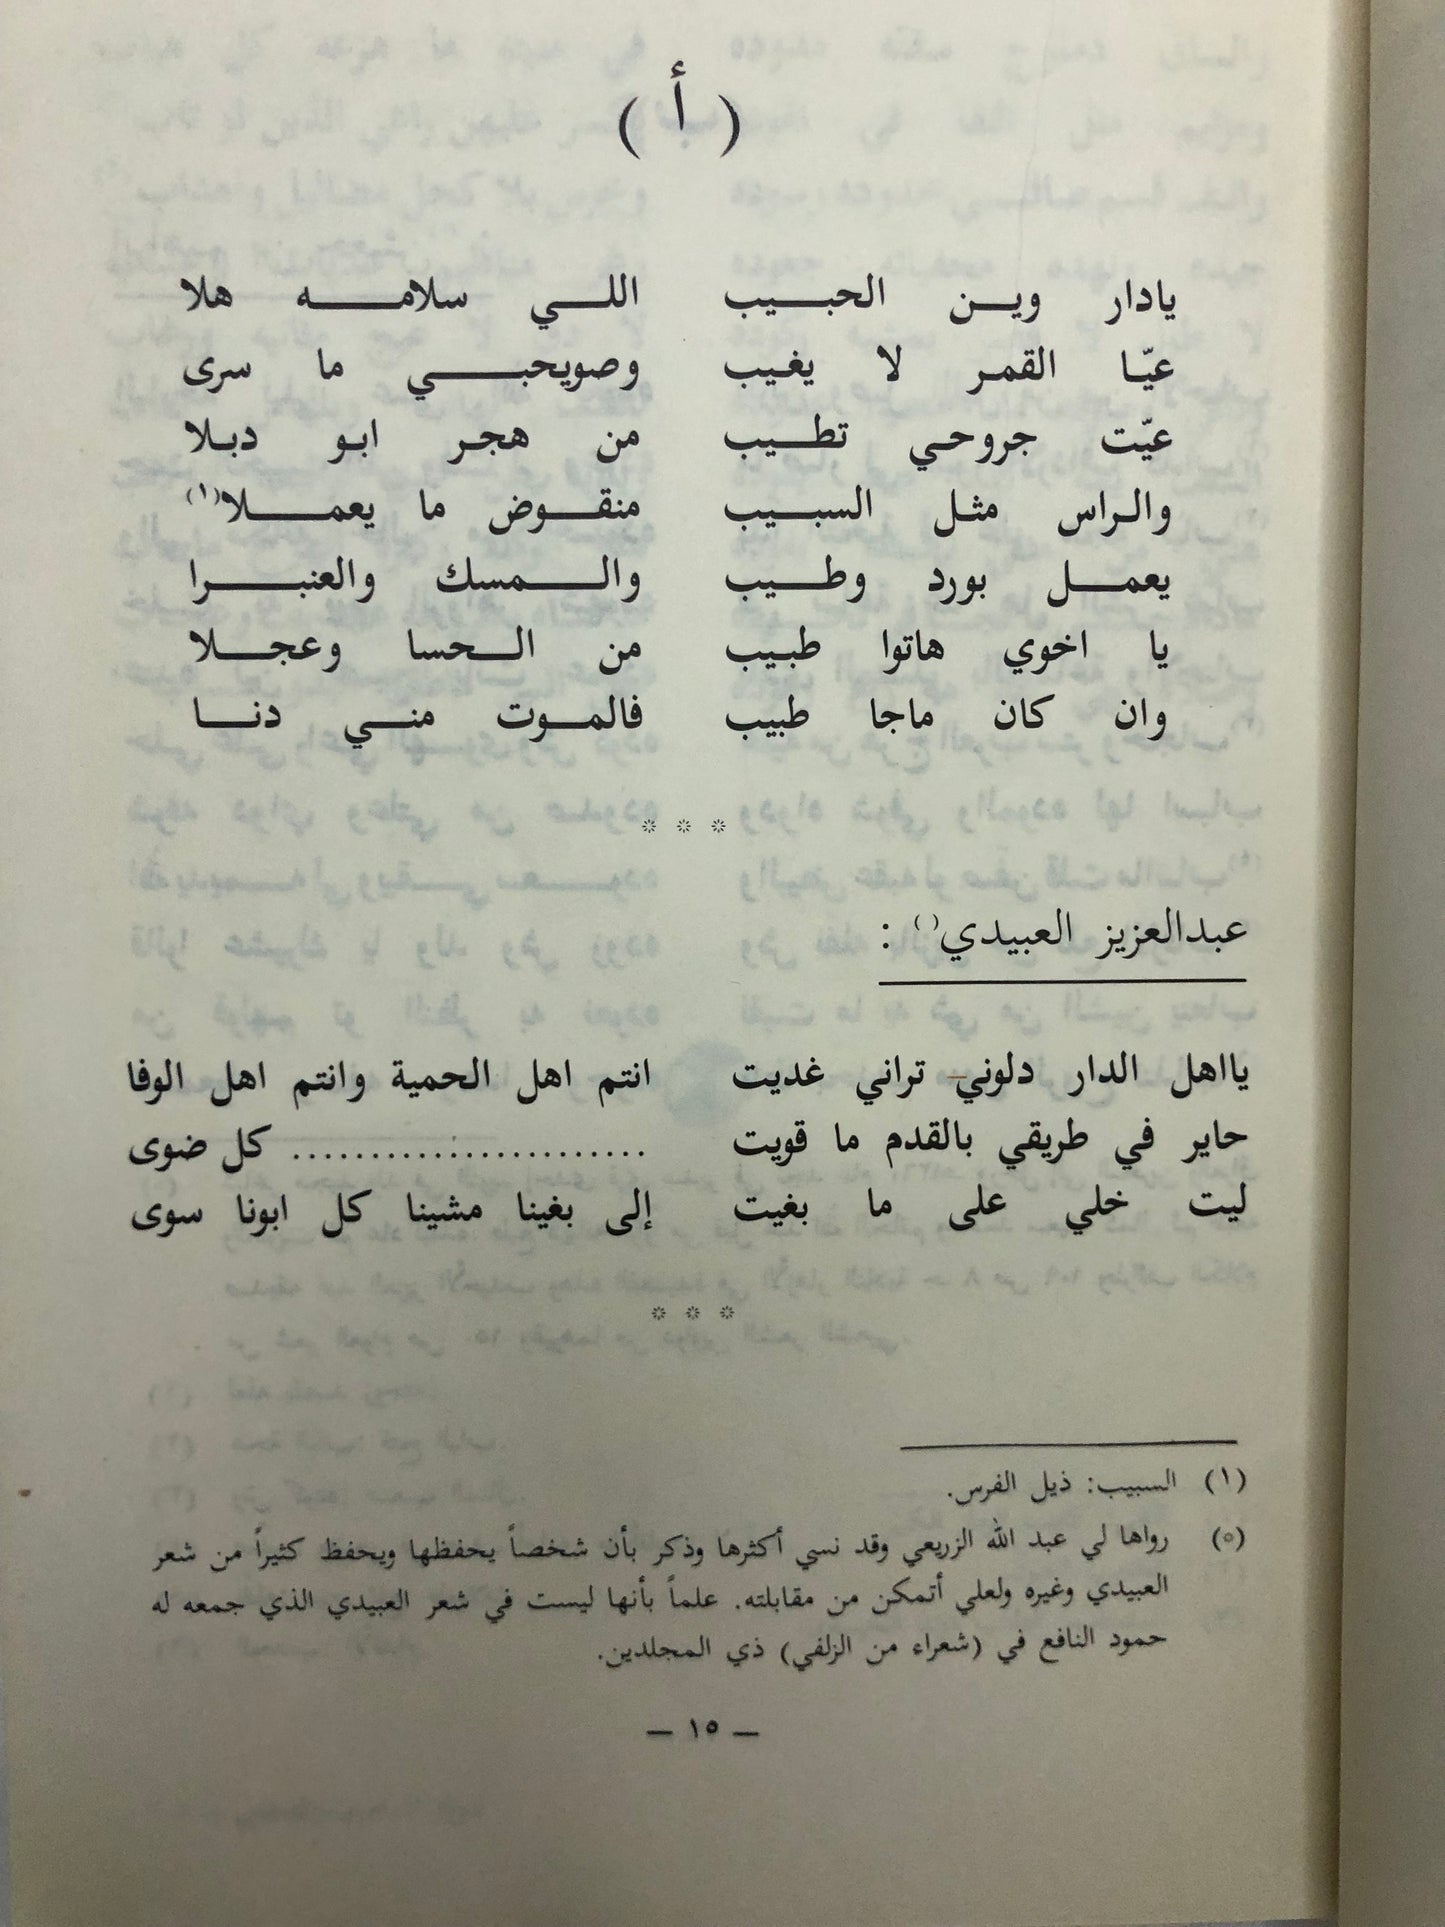 ( أ )
يادار وين الحبيب اللي سلامه هلا
عيّا القمر لا يغيب وصويحبي ما سرى
عيّت جروحي تطيب من هجر ابو دبلا
والراس مثل السبيب منقوض ما يعملا(١)
يعمل بورد وطيب والمسك والعنبرا
يا اخوي هاتوا طبيب من الحسا وعجلا
وان كان ماجا طبيب فالموت مني دنا
* * *
عبدالعزيز العبيدي( ) :
يااهل الدار دلوني تراني غديت انتم اهل الحمية وانتم اهل الوفا
حاير في طريقي بالقدم ما قويت ....................... كل ضوى
ليت خلي على ما بغيت إلى بغينا مشينا كل ابونا سوى
* * *
(١) السبيب: ذيل الفرس.
(*) رواها لي عبد الله الزريعي وقد نسي أكثرها وذكر بأن شخصاً يحفظها ويحفظ كثيراً من شعر
العبيدي وغيره ولعلي أتمكن من مقابلته. علماً بأنها ليست في شعر العبيدي الذي جمعه له
حمود النافع في (شعراء من الزلفي) ذي المجلدين.
— ١٥ —